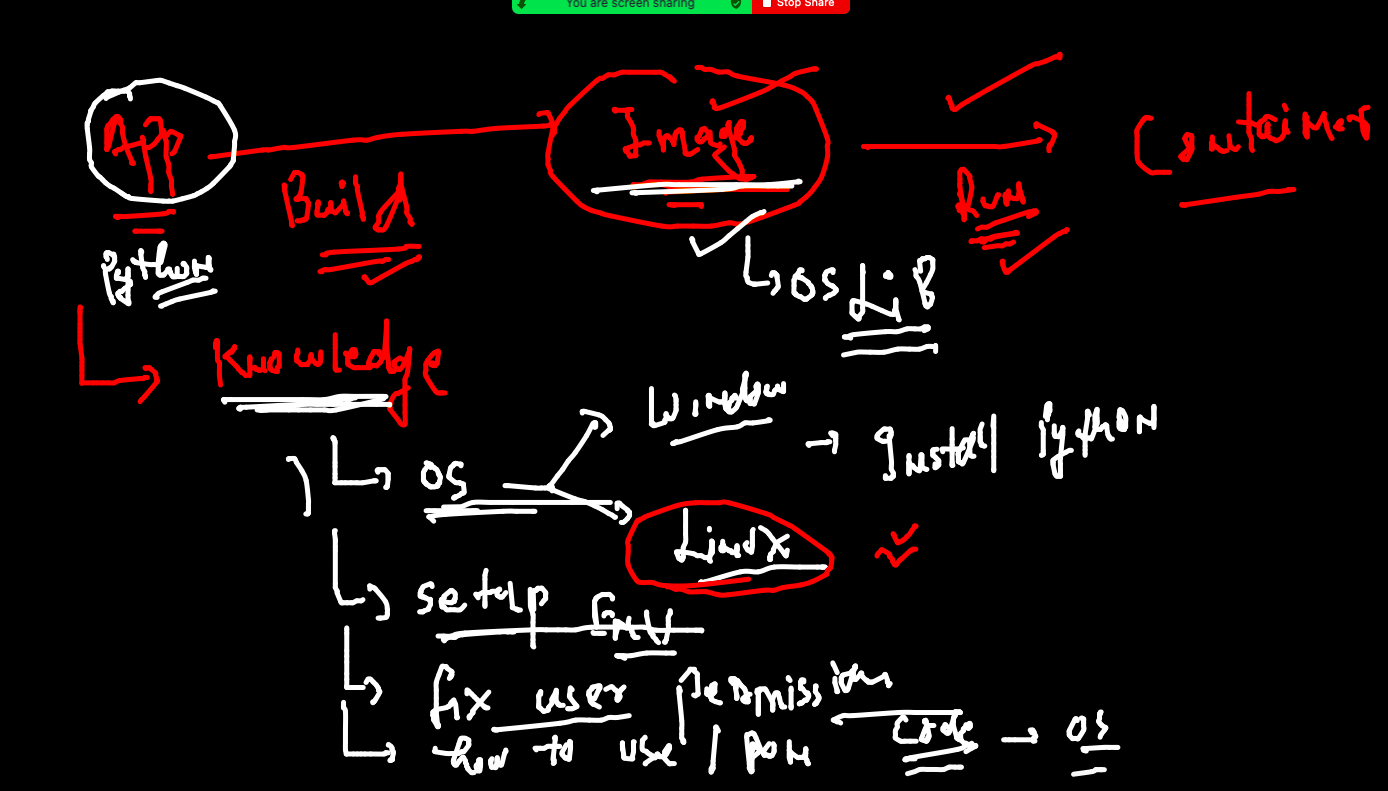 You are screen sharing Stop Share
App
Build
Image
Run
Container
Python
OS LiB
Knowledge
Window
Install Python
OS
Linux
setup Env
fix user Permission
how to use / Run
Code → OS